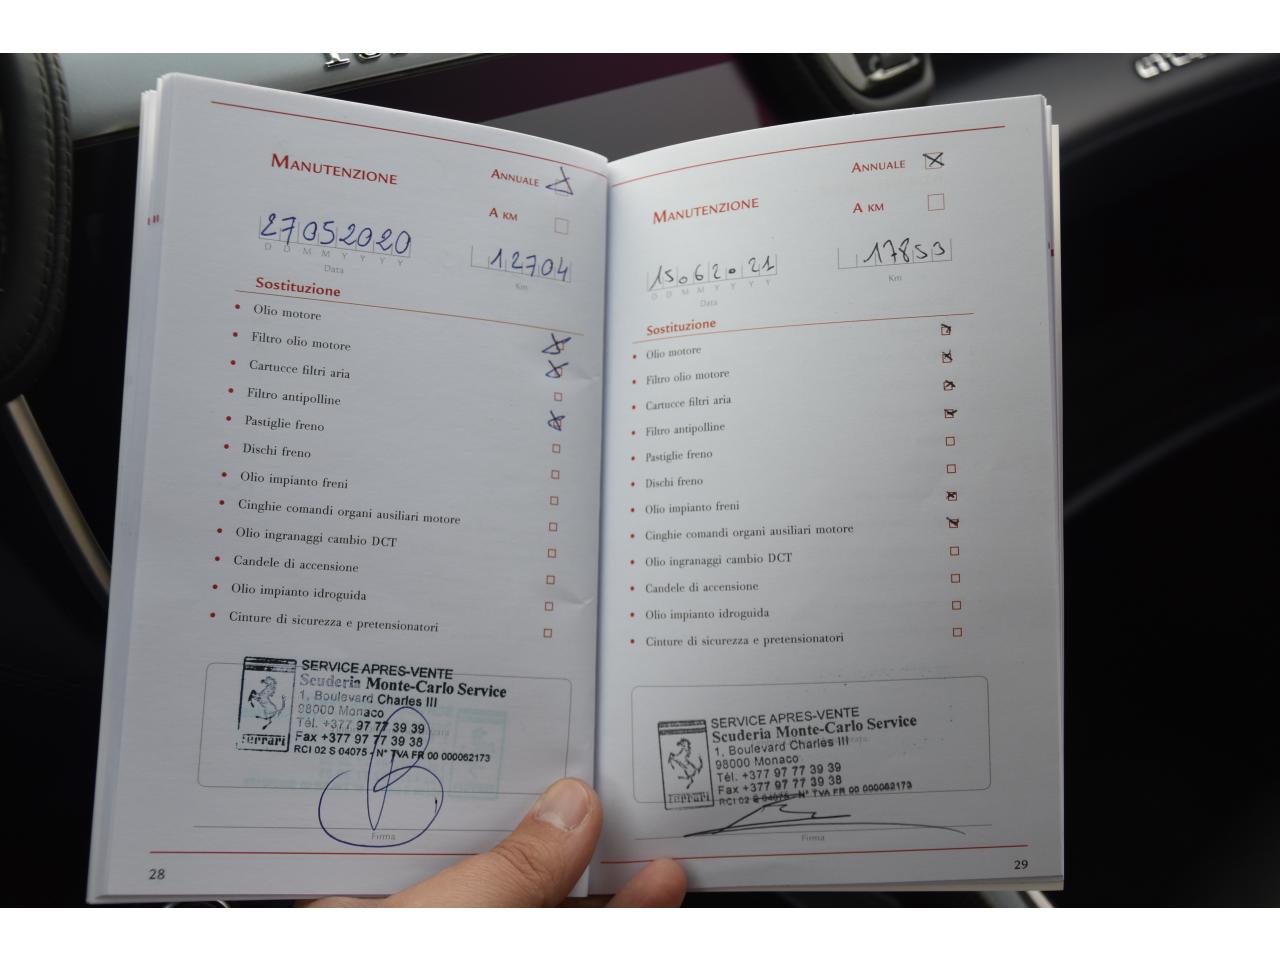 MANUTENZIONE
ANNUALE
A KM
27052020
D D M M Y Y Y Y
Data
12704
Km
Sostituzione
Olio motore
Filtro olio motore
Cartucce filtri aria
Filtro antipolline
Pastiglie freno
Dischi freno
Olio impianto freni
Cinghie comandi organi ausiliari motore
Olio ingranaggi cambio DCT
Candele di accensione
Olio impianto idroguida
Cinture di sicurezza e pretensionatori
SERVICE APRES-VENTE
Scuderia Monte-Carlo Service
1, Boulevard Charles III
98000 Monaco
Tél. +377 97 77 39 39
Fax +377 97 77 39 38
RCI 02 S 04075 - N° TVA FR 00 000062173
Ferrari
Firma
28
MANUTENZIONE
ANNUALE
A KM
D D M M Y Y Y Y
Data
17853
Km
Sostituzione
Olio motore
Filtro olio motore
Cartucce filtri aria
Filtro antipolline
Pastiglie freno
Dischi freno
Olio impianto freni
Cinghie comandi organi ausiliari motore
Olio ingranaggi cambio DCT
Candele di accensione
Olio impianto idroguida
Cinture di sicurezza e pretensionatori
SERVICE APRES-VENTE
Scuderia Monte-Carlo Service
1, Boulevard Charles III
98000 Monaco
Tél. +377 97 77 39 39
Fax +377 97 77 39 38
RCI 02 S 04075 - N° TVA FR 00 000062173
Ferrari
Firma
29